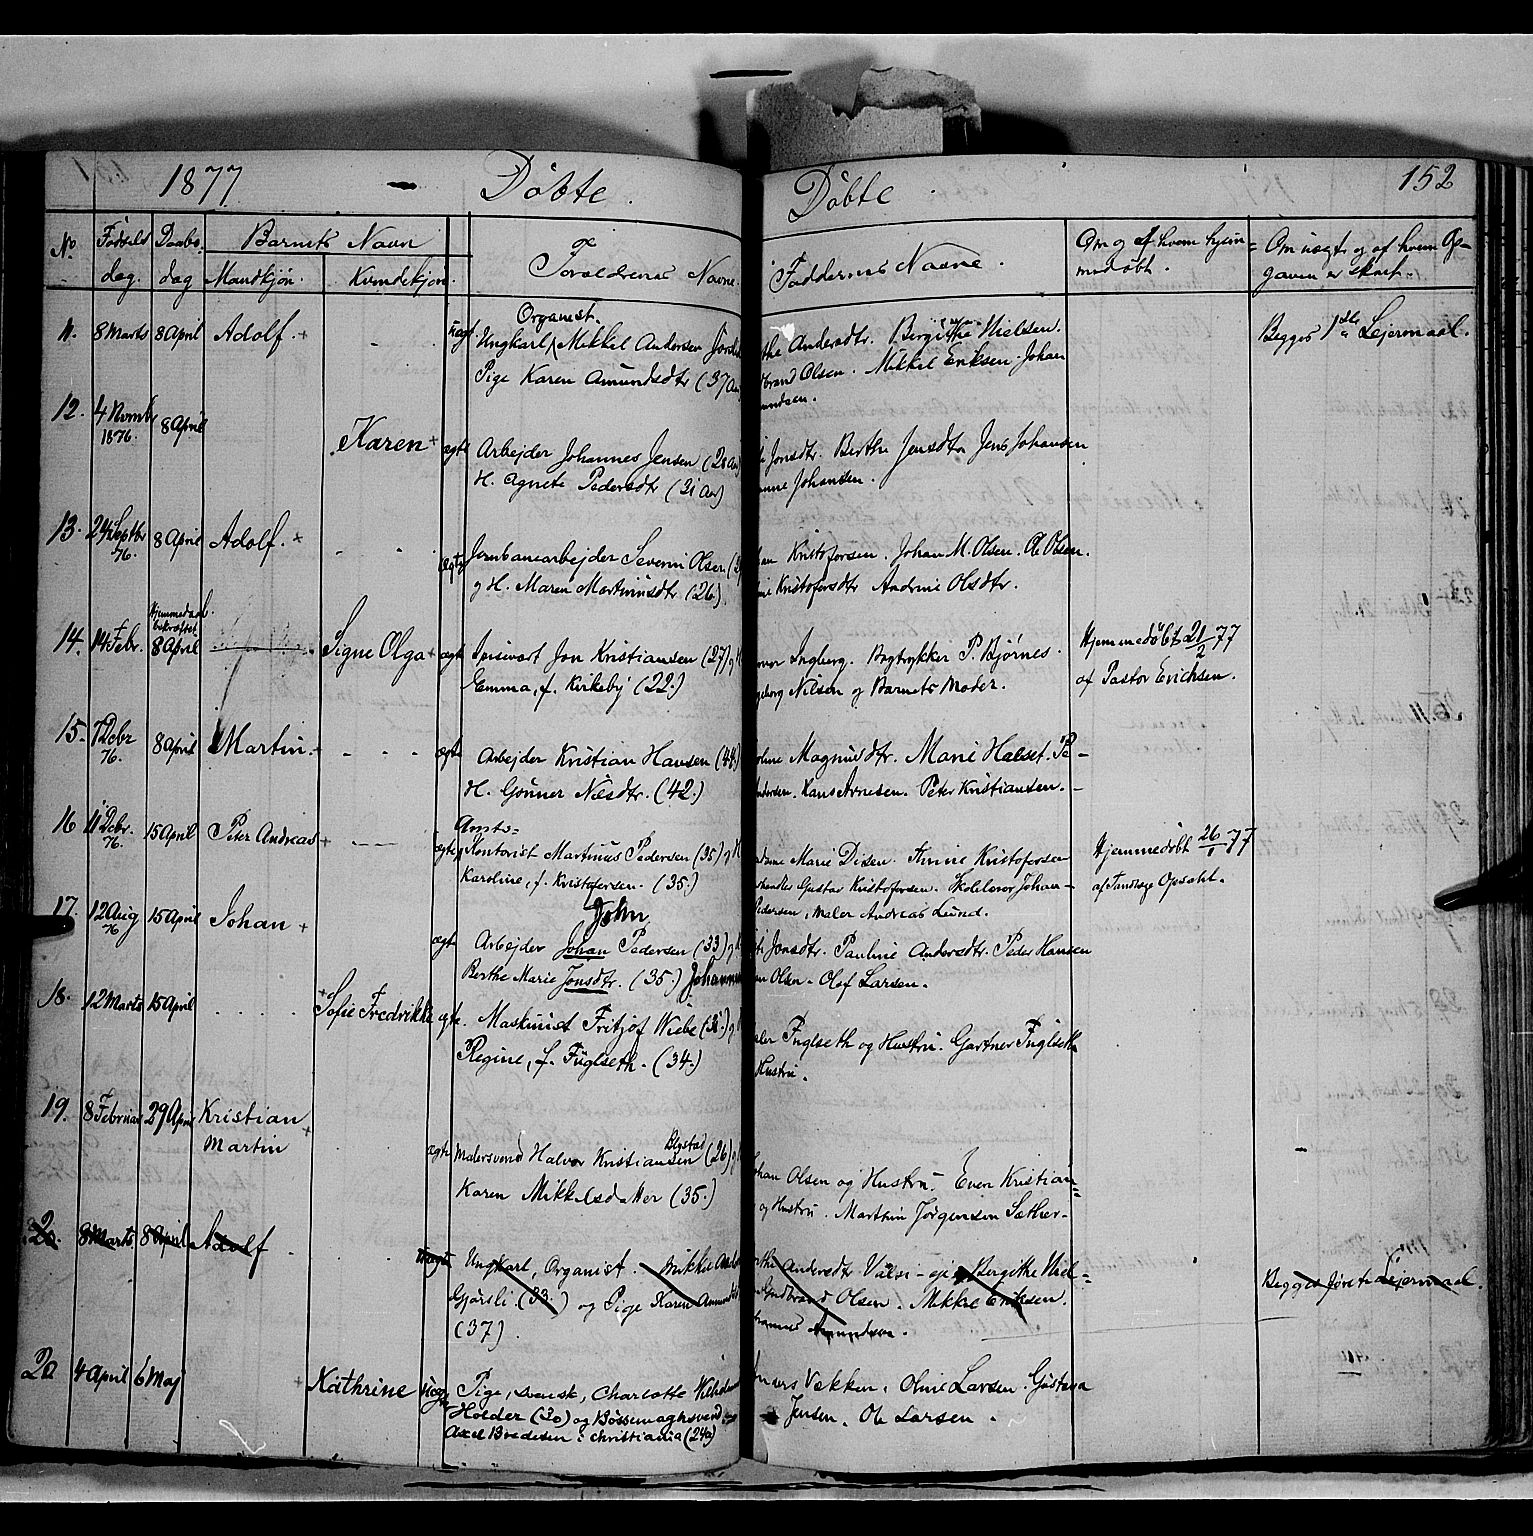 1877 Döbte.
Döbte 152
No. Fødsels dag. Daabs dag Barnets Navn Mandkjøn. Kvindekjøn. Forældrenes Navne. Faddernes Navne. Om og af hvem hjem= medøbt. Om uægte og af hvem Op= gaven er skeet.
11. 8 Marts 8 April Adolf. + uægt.
Organist.
Ungkarl Mikkel Andersen
Pige Karen Amundsdtr (37
Andersdtr. Bergithe Nielsen.
brand Olsen. Mikkel Eriksen. Johan
undsen.
Begges 1ste Lejermaal.
12. 4 Novmbr 1876. 8 April Karen + ægte
Arbejder Johannes Jensen (28 Aar)
H. Agnete Pedersdtr (31 Aar)
Jonsdtr. Berthe Jensdtr Jens Johansen
anne Johansen.
13. 24 Septbr 76. 8 April Adolf. + ægte
Jernbanearbejder Severin Olsen
og H. Maren Martiniusdtr (26).
Kristofersen. Johan M. Olsen. Ole Olsen.
Kristofersdtr Andrine Olsdtr.
14. 14 Febr. Hjemmedaab bekræftet 8 April Signe Olga + ægte
Spisevært Jon Kristiansen (27) og H
Emma, f. Kirkeby (22.)
Ingberg. Bogtrykker P. Bjørnes.
geborg Nilsen og Barnets Moder.
Hjemmedøbt 21/2 77
af Pastor Erichsen.
15. 7 Decbr 76. 8 April Martin. + ægte
Arbejder Kristian Hansen (44)
H. Gunner Nilsdtr. (42.)
oline Magnusdtr. Marie Halset. Pe-
andersen. Hans Arnesen. Peter Kristiansen.
16 11 Decbr. 76. 15 April Peter Andreas + ægte
Amts=
Kontorist Martinus Pedersen (35) og H
Karoline, f. Kristofersen. (35.)
Marie Disen. Amine Kristofersen
handler Gustav Kristofersen. Skolelærer Johan-
Pedersen, Maler Andreas Lund.
Hjemmedøbt 26/1 77
af Tandlæge Opsahl.
17. 12 Aug 76 15 April Johan + ægte
John
Arbejder Johan Pedersen (33) og
Berthe Marie Jonsdtr. (35.)
Jonsdtr. Pauline Andersdtr. Peder Hansen
Olsen. Olof Larsen.
18. 12 Marts 15 April + Sofie Fredrikke ægte.
Maskinist Fritjof Wiebe (38.) og
Regine, f. Fuglseth. (34.)
Fuglseth og Hustru. Gartner Fuglseth
Hustru.
19. 8 Februar 29 April Kristian Martin + ægte
Malersvend Halvor Kristiansen Blystad (26) og
Karen Mikkelsdatter (35.)
Johan Olsen og Hustru. Even Kristian=
og Hustru. Marthin Jørgensen Sæther.
20. 8 Marts 8 April Adolf uægte
Ungkarl, Organist. Mikkel Ande
Gjørsli. (33.) og Pige Karen Amundsd
(37).
Andersdtr Valsi-eje Bergithe Niel=
Gudbrand Olsen. Mikkel Eriksen.
Johannes Amundsen.
Begges første Lejermaal.
20 4 April 6 Maj + Kathrine uægte
Pige, svensk, Charlotte
Holder (30) og Bøssemagersvend
Axel Bredesen i Christiania (24a)
Vækken. Oline Larsen. Gustava
Jensen. Ole Larsen.